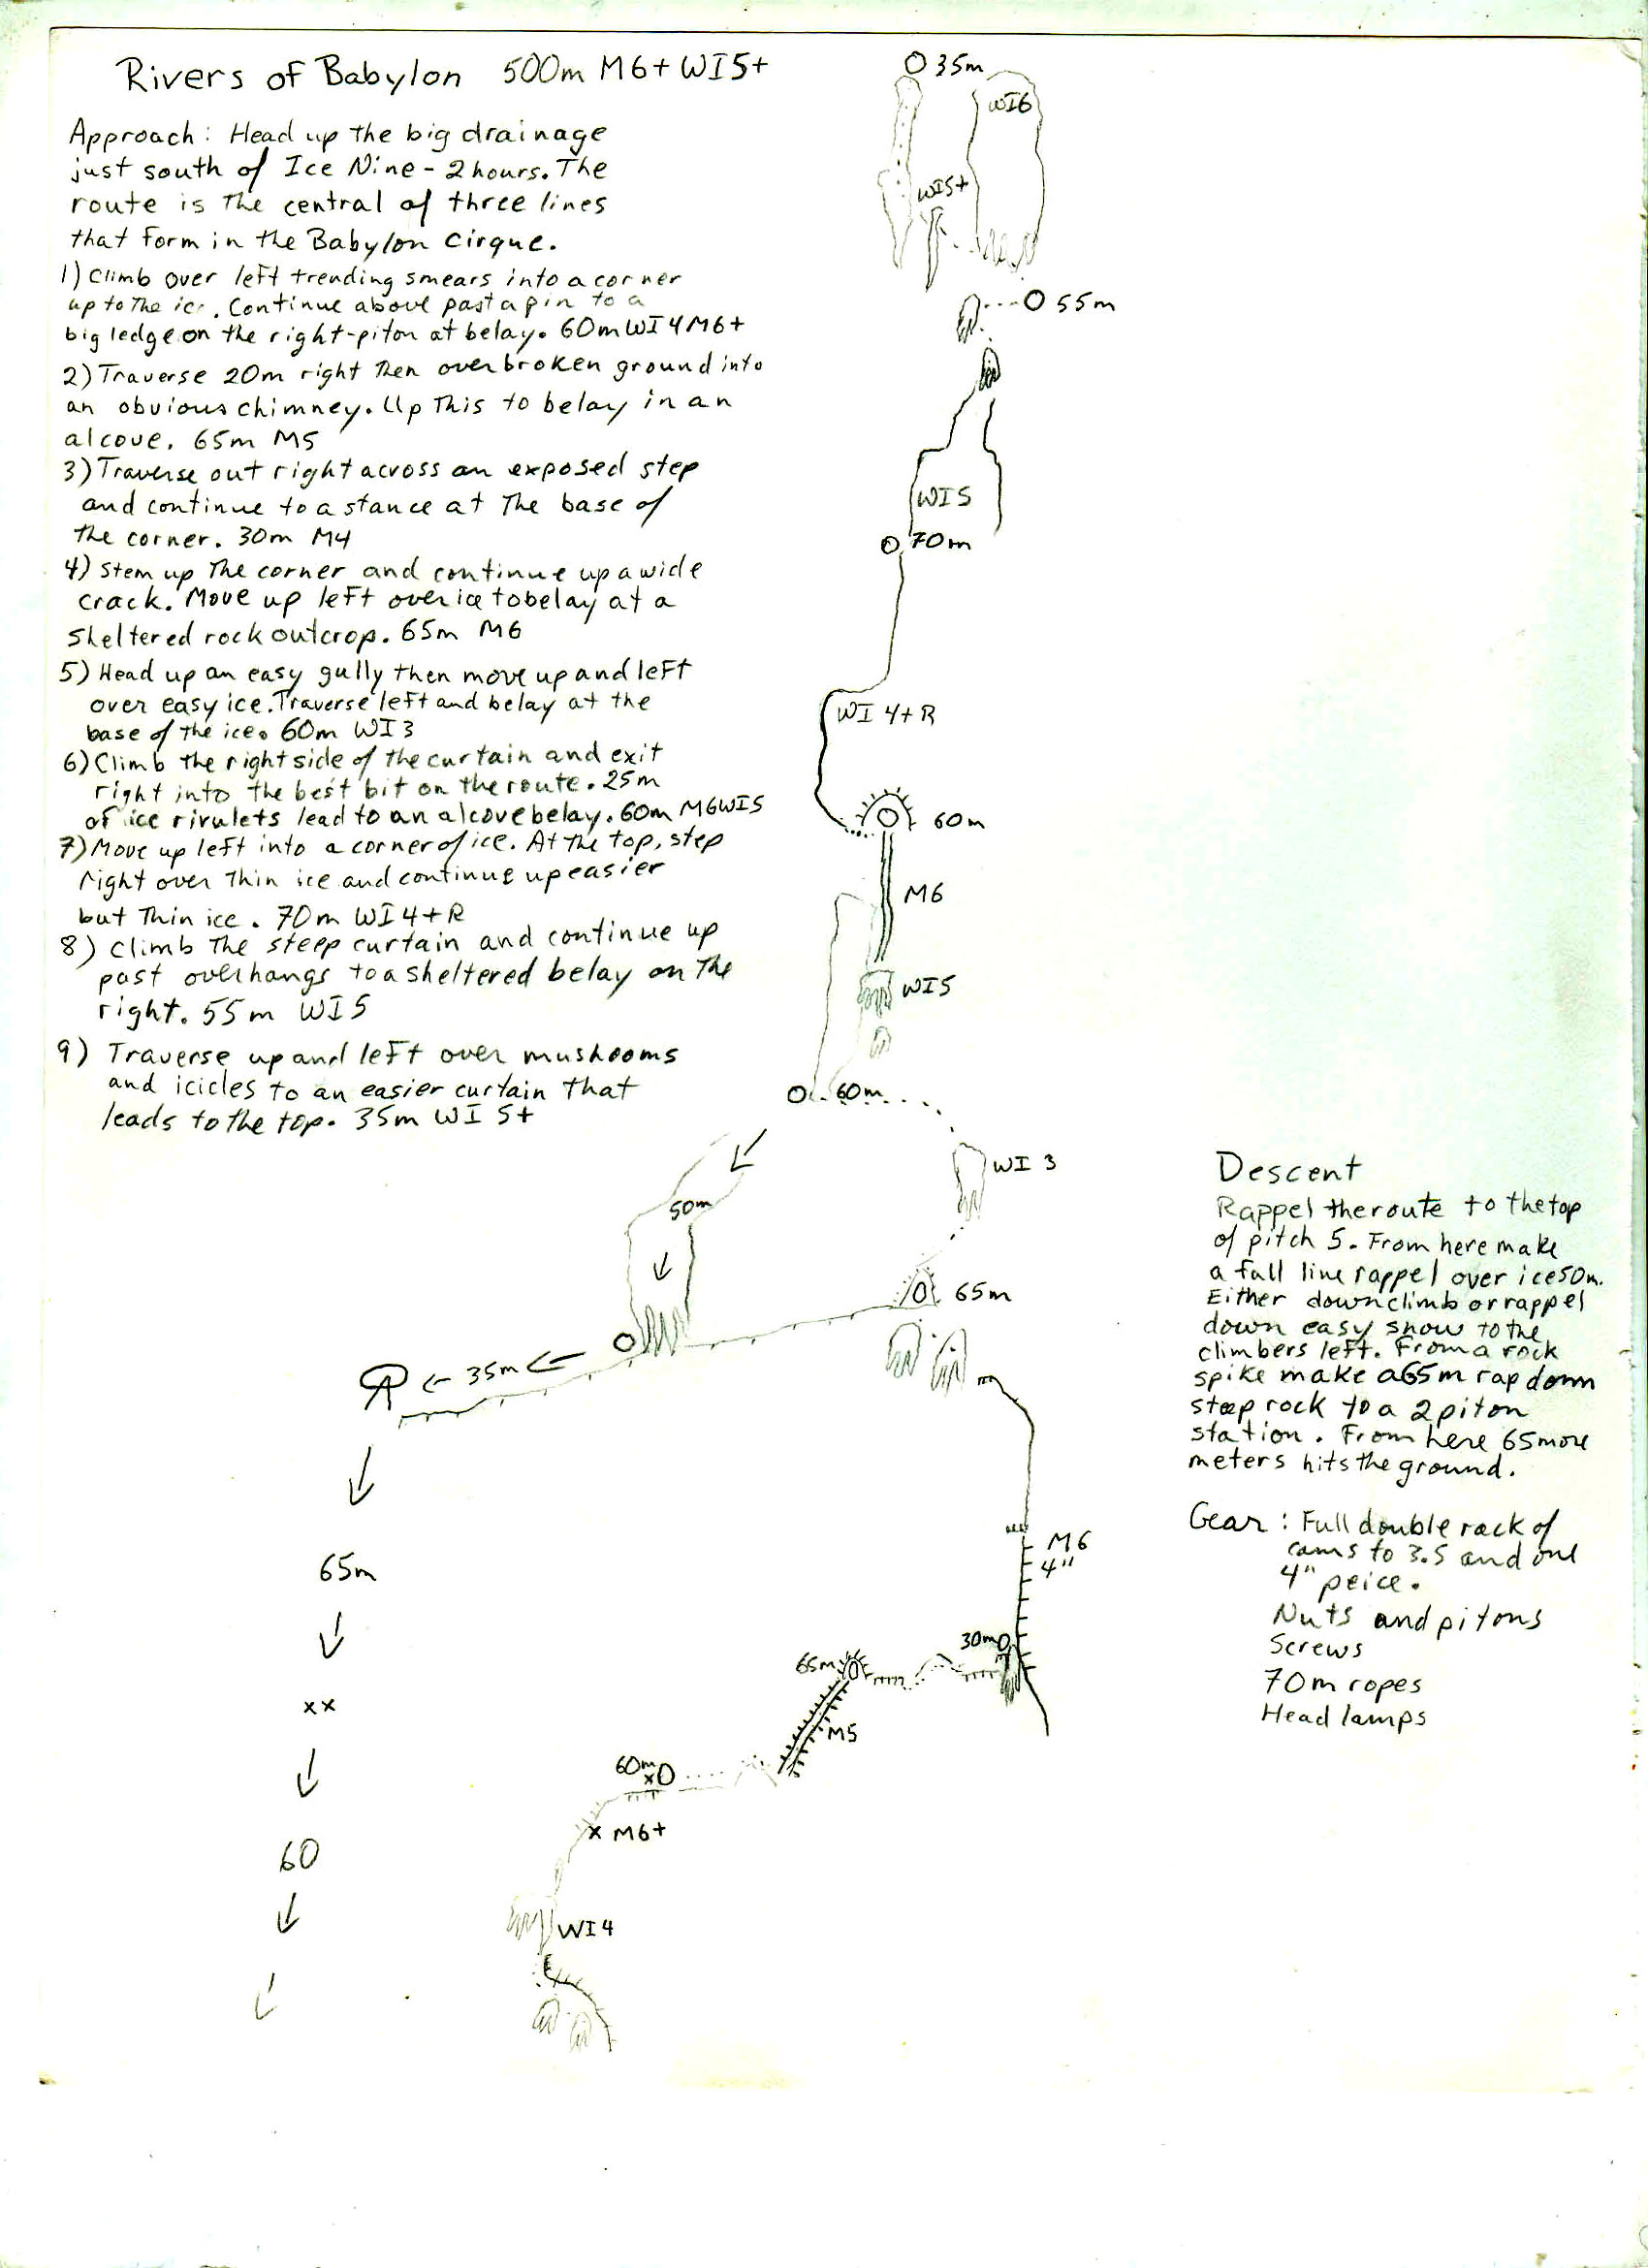 Rivers of Babylon 500m M6+ WI5+
Approach: Head up the big drainage
just south of Ice Nine - 2 hours. The
route is the central of three lines
that form in the Babylon Cirque.
1) Climb over left trending smears into a corner
up to the ice. Continue above past a pin to a
big ledge on the right - piton at belay. 60m WI4 M6+
2) Traverse 20m right then over broken ground into
an obvious chimney. Up This to belay in an
alcove. 65m M5
3) Traverse out right across an exposed step
and continue to a stance at The base of
the corner. 30m M4
4) Stem up The corner and continue up a wide
crack. Move up left over ice to belay at a
sheltered rock outcrop. 65m M6
5) Head up an easy gully then move up and left
over easy ice. Traverse left and belay at the
base of the ice. 60m WI3
6) Climb the right side of the curtain and exit
right into the best bit on the route. 25m
of ice rivulets lead to an alcove belay. 60m M6 WI5
7) Move up left into a corner of ice. At the top, step
right over Thin ice and continue up easier
but Thin ice. 70m WI4+R
8) Climb The steep curtain and continue up
past overhangs to a sheltered belay on The
right. 55m WI5
9) Traverse up and left over mushooms
and icicles to an easier curtain that
leads to the top. 35m WI 5+
35m
WI6
WI5+
55m
WI5
70m
WI 4+ R
60m
M6
WI5
60m
WI 3
50m
65m
← 35m ←
M6
4"
65m
30m
65m
M5
xx
60m
x
x M6+
60
WI4
Descent
Rappel the route to the top
of pitch 5. From here make
a fall line rappel over ice 50m.
Either downclimb or rappel
down easy snow to the
climbers left. From a rock
spike make a 65m rap down
steep rock to a 2 piton
station. From here 65 more
meters hits the ground.
Gear: Full double rack of
cams to 3.5 and one
4" peice.
Nuts and pitons
Screws
70m ropes
Head lamps